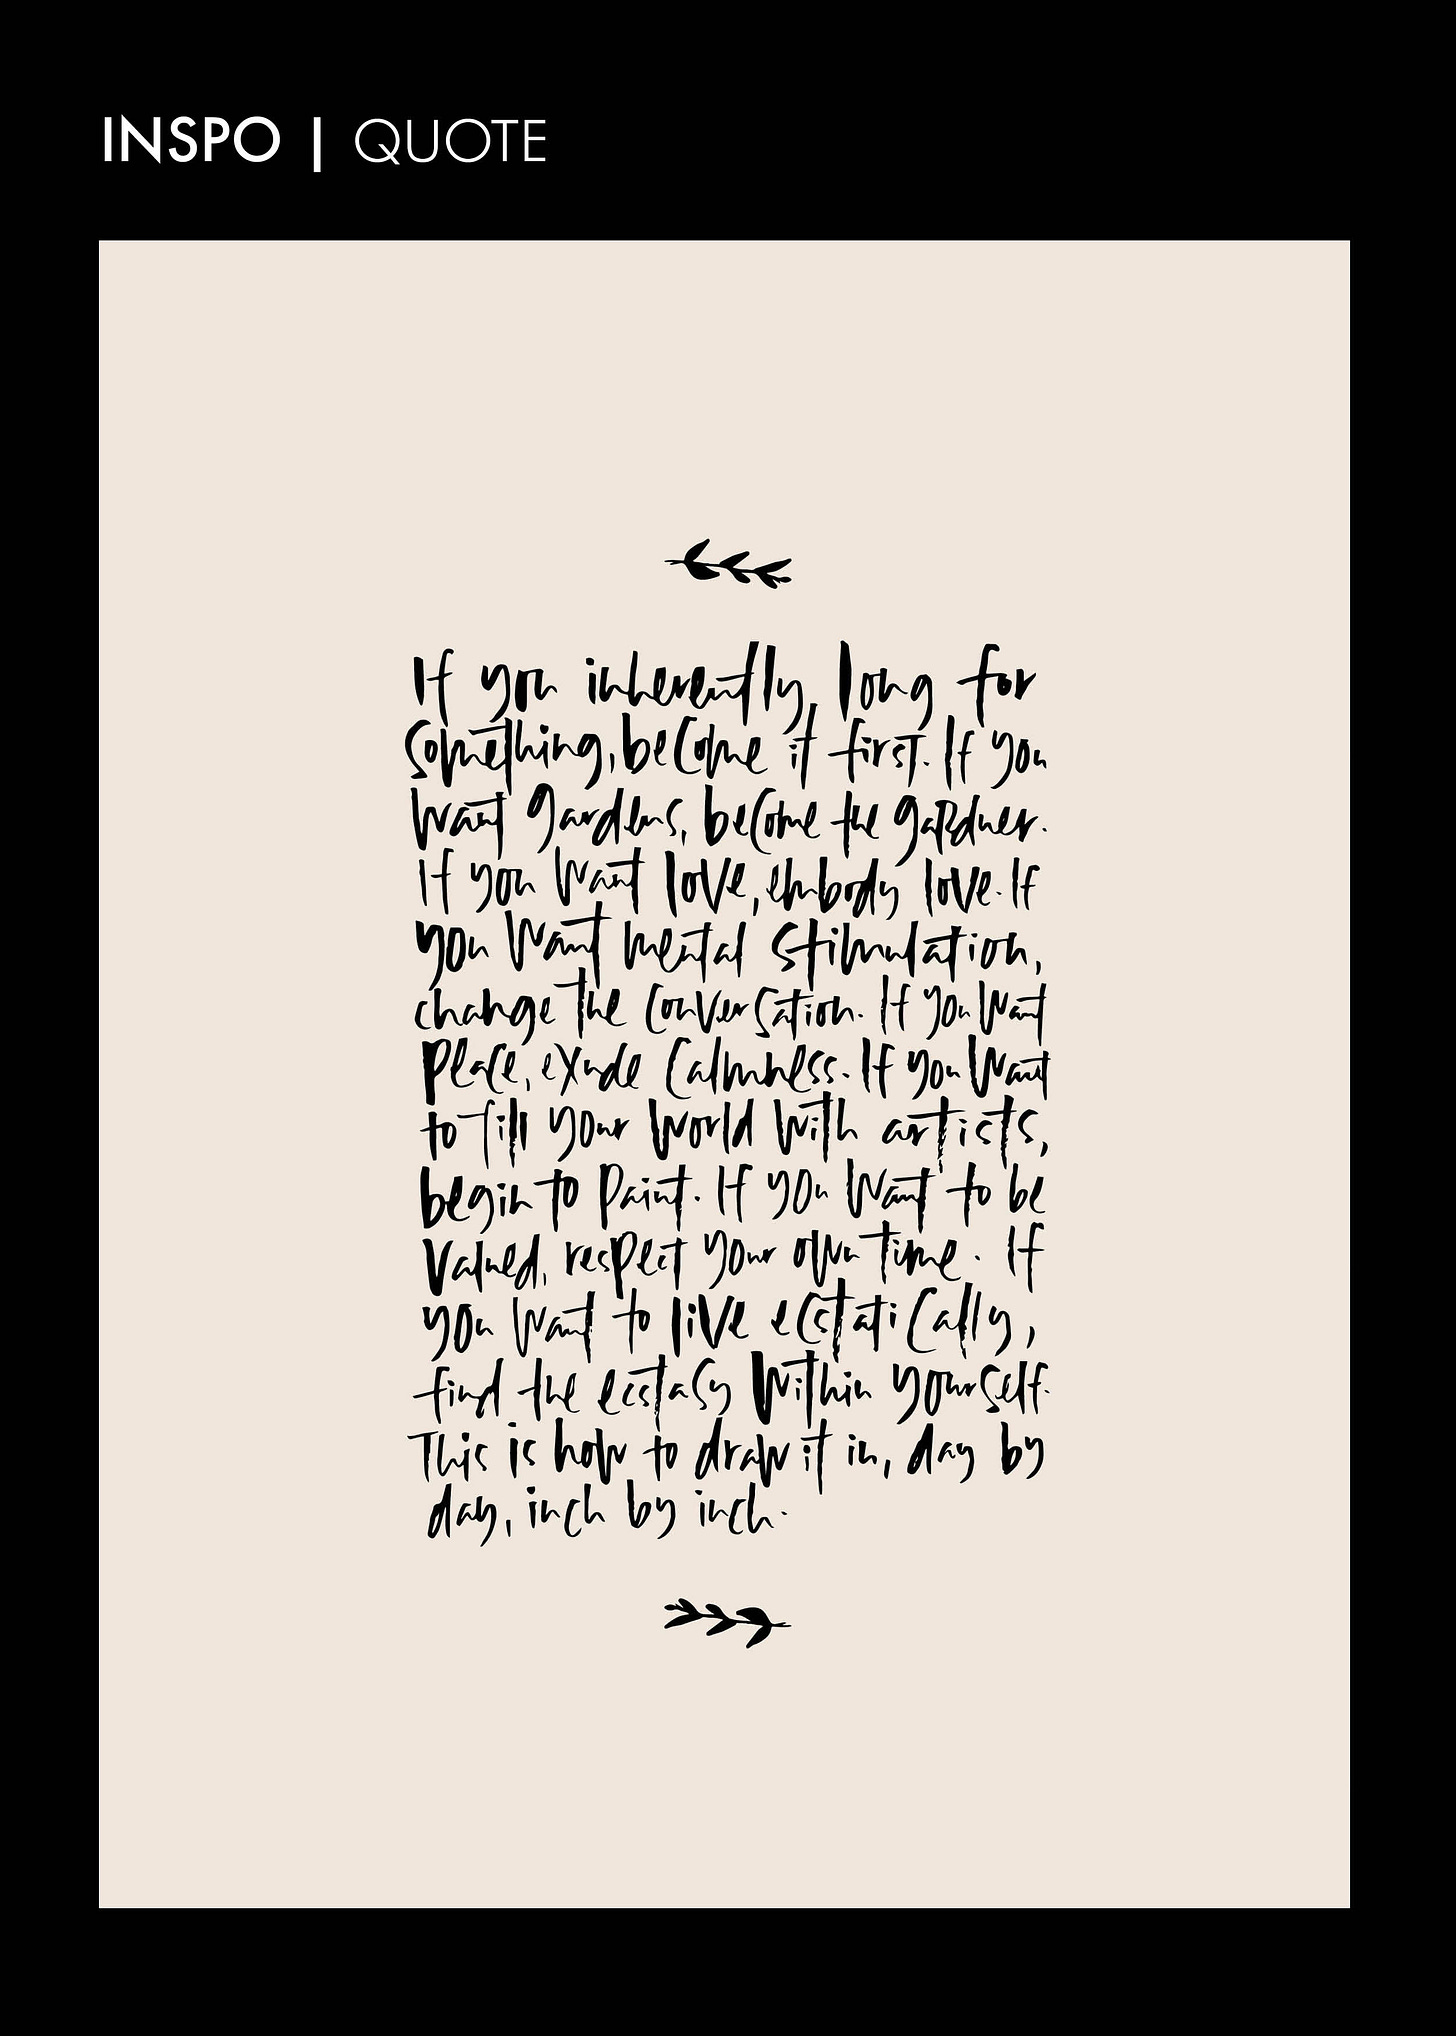 INSPO | QUOTE
If you inherently long for
something, become it first. If you
want gardens, become the gardner.
If you want love, embody love. If
you want mental stimulation,
change the conversation. If you want
peace, exude calmness. If you want
to fill your world with artists,
begin to paint. If you want to be
valued, respect your own time. If
you want to live ecstatically,
find the ecstasy within yourself.
This is how to draw it in, day by
day, inch by inch.